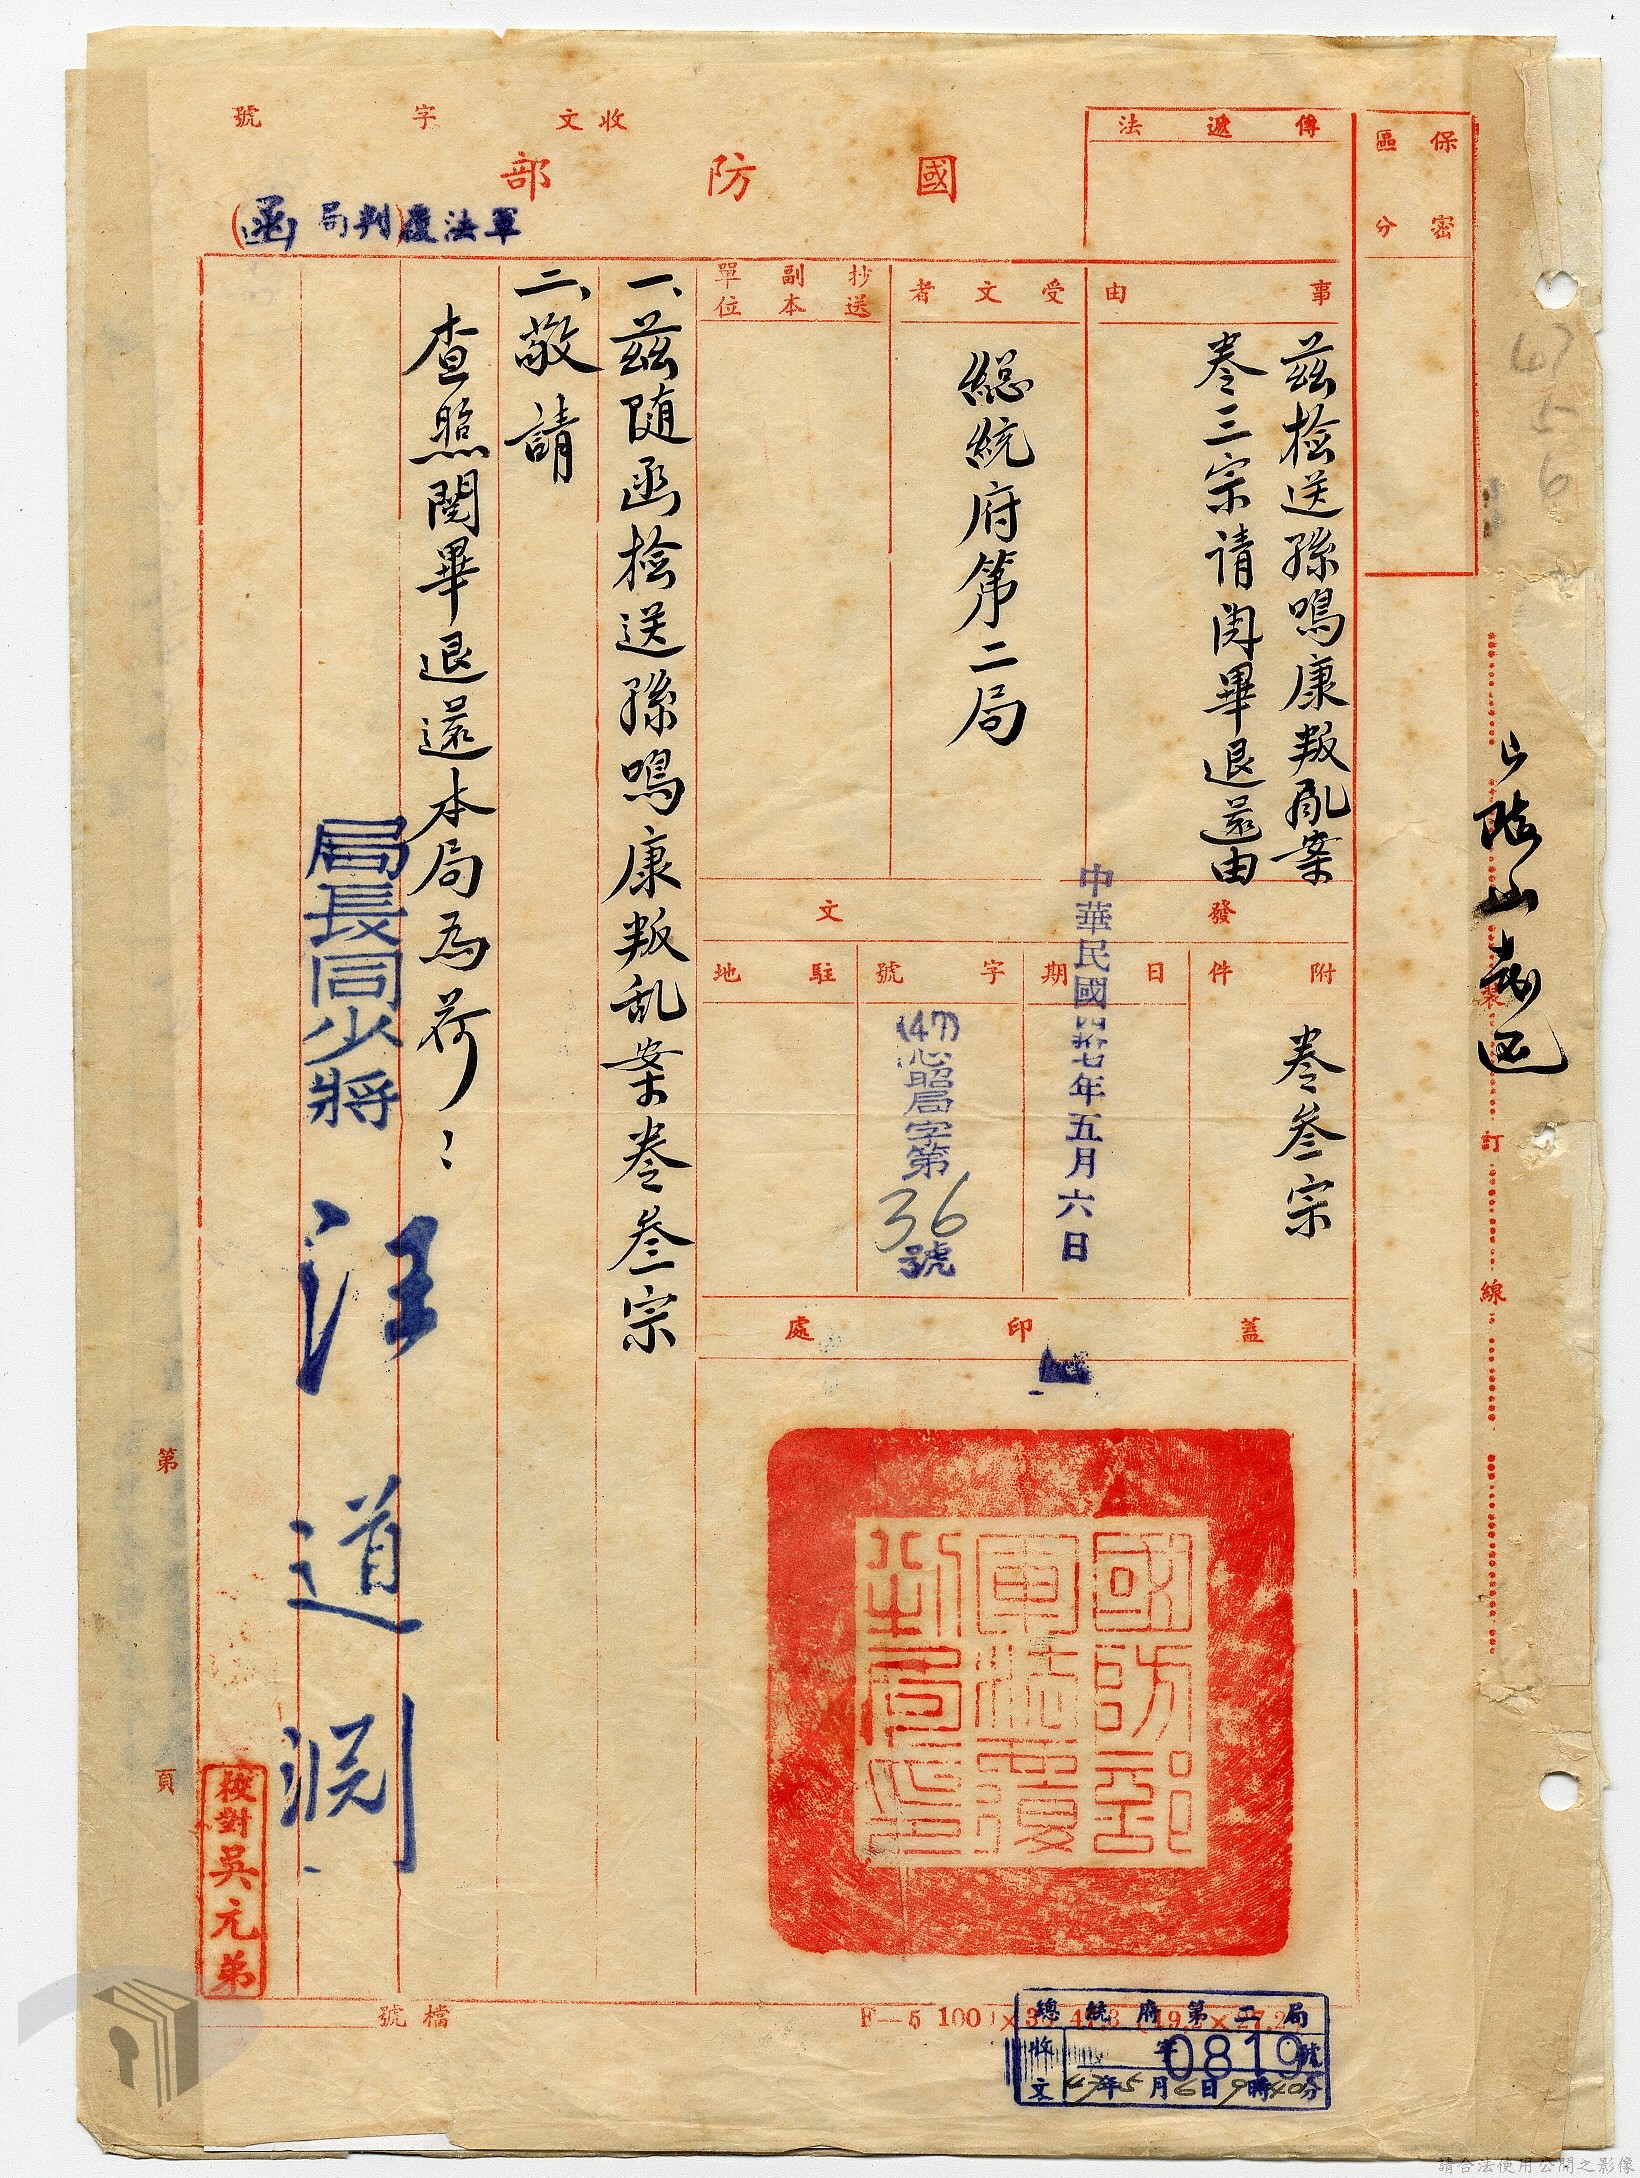 保密
區分
傳遞法
收文 字 號
國防部
軍法覆判局(函)
事由
茲檢送孫鳴康叛亂案
卷三宗请閱畢退還由
受文者
總統府第二局
抄送
副本
單位
發文
附件
卷叁宗
日期
中華民國四拾七年五月六日
字號
(47)心昭局字第36號
駐地
蓋印處
國防部
軍法覆
判局印
一、茲随函檢送孫鳴康叛乱案卷叁宗
二、敬請
查照閱畢退還本局為荷：
局長同少將
汪道淵
校對吳元弟
裝
訂
線
第
頁
檔號
總統府第二局
收文
字0819號
47年5月6日9時40分
4756
請合法使用公開之影像